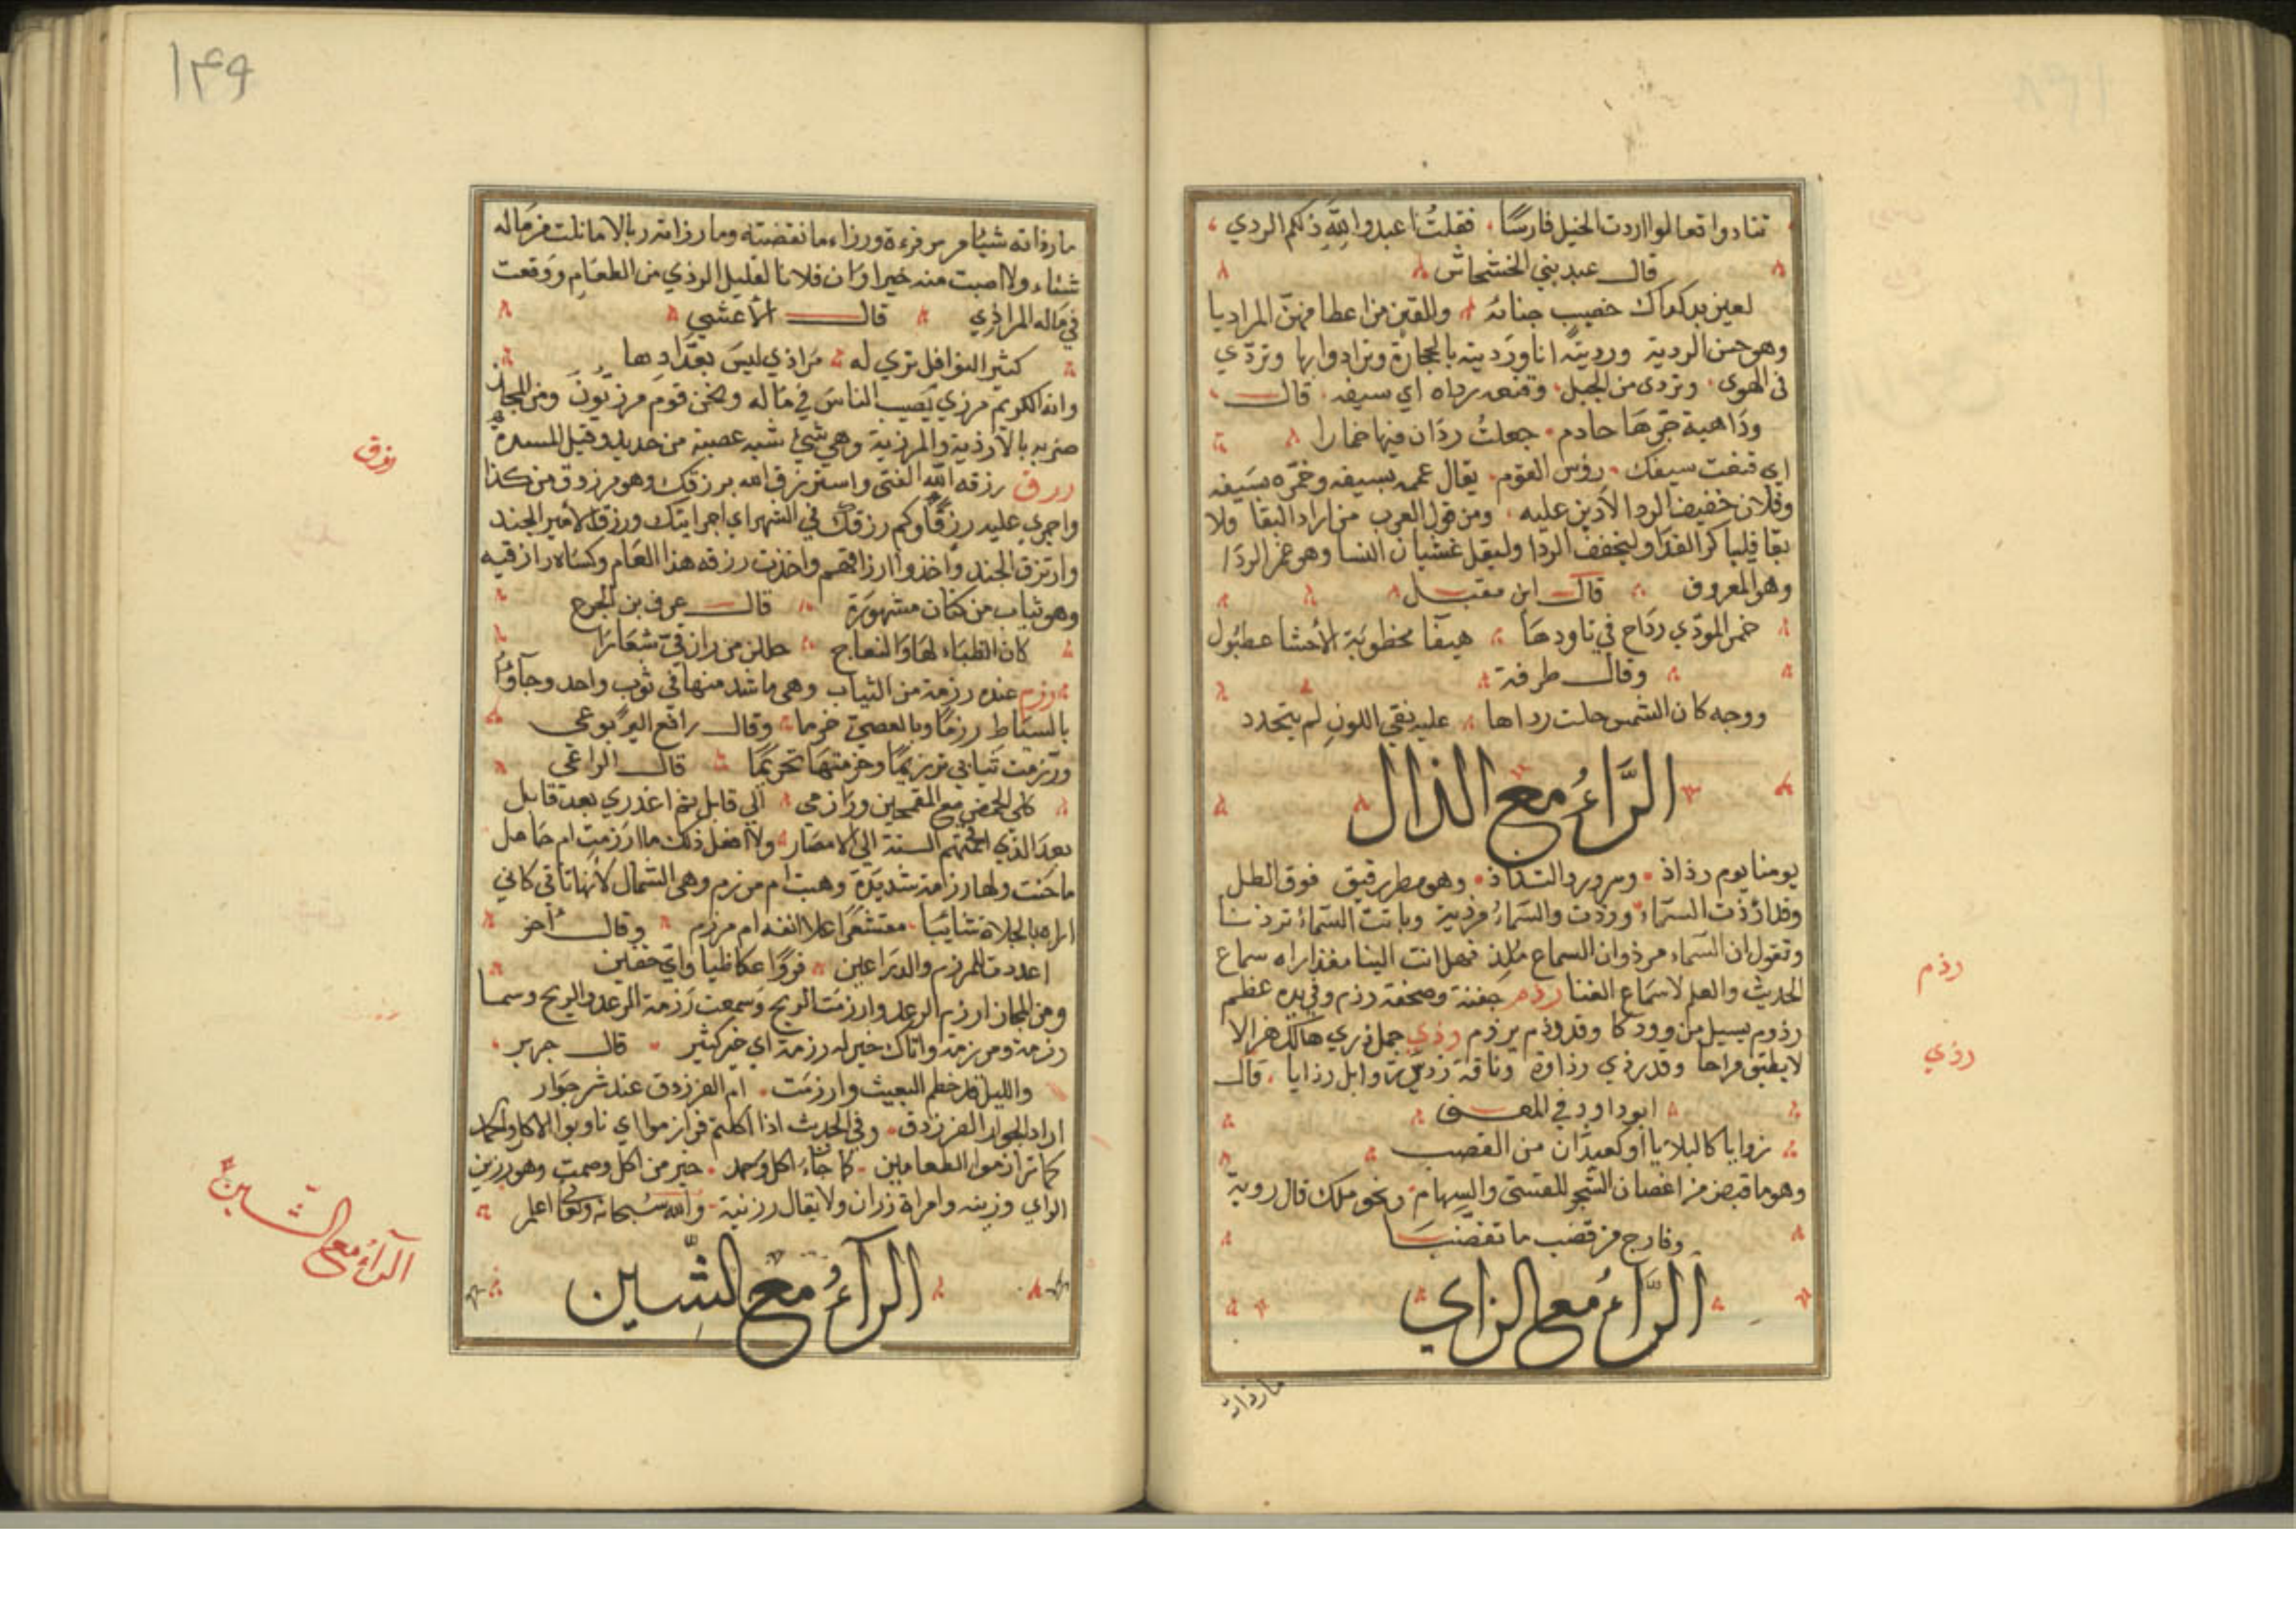 تنادوا تعالوا اردت الخيل فارسًا فقلتُ اعبدوا اللهِ ذلكم الردي
قال عبد بني الخشخاش
لعين بدكداك خصيب جنابه وللقين من اعطافهنّ المراديا
وهو حسن الردية ورديتُه انا ورديته بالحجارة وترادوا بها وتردّي
فى الهوى وتردى من الجبل وقنعه رداه اي سيفه قال
ودَاهية جرّها حارم جعلتُ ردَان فيها خمارا
اي قنعت سيفك رؤس القوم يقال عممه بسيفه وخمّره بسَيفه
وفلان خفيف الردا لادين عليه ومن قول العرب من اراد البقا ولا
بقا فليباكر الغدَا وليخفف الردّا وليقل غشيان النسا وهو غمر الردَا
وهو المعروف قال ابن مقبل
خمر المودّي ردَاح في تاودهَا هيفآ مخطوبة الأحشا عطبُول
وقال طرفة
ووجه كان الشمس حلت رداها عليه نقي اللونِ لم يتخدد
الرَّاءُ مع الذال
يومنا يوم رذاذ وسرور التذاذ وهو مطر رقيق فوق الطل
وقد ارذت السّمَاء ورذت والسّمَاءُ مرذية وباتت السّمَاءُ ترذنا
وتقول ان السّمَاء مرذ وان السماع ملذ فهل انت الينا مغذ اراد سماع
الحديث والعلم لا سمَاع الغنا رذم جَفنة وصحفة رذم وفي يده عظم
رذوم يسيل من وودكا وقد رذم يرذم رذي جمل رذي هالك هزالا
لا يطيق براحا وقد رذي رذاوة وناقة رذيّة وابل رذايا قال
ابو داود في المعـ
رزايا كالبلايا او كعيدَان من القصب
وهو ما قبض من اغصان الشجر للقسى والسِهام ونحو ملك قال روبة
وفارج من قضب ما تقضّبَا
الرَّاءُ مع الزاي
مارذاته
رذم
رذي
١٤٩
مارذاته شيًا مرزءة ورزاء ما نقضته وما رزاته زبالا ما نلت من مَاله
شياء ولا اصبت منه خيرا وَان فلانا لقليل الرذي من الطعَام ووَقعت
في مَاله المرازي قال الأعشي
كثير النوافل تري له مَرازي ليسَ بعدّادها
وانه الكريم مرزي يصيب الناسَ في مَاله ونحن قوم مرزيّونَ ومن المجاز
ضربه بالارذبة والمرزبة وهي شئ شبه عصية من حديد وقيل المسدرة
ررق رزقه الله الغنى واسترزق الله برزقك وهو مرزوق من كذا
واجري عليه رزقًا وكم رزقكَ في الشهر اي اجرايتك ورزق الأمير الجند
وارتزق الجند واخذوا ارزاقهم واخذت رزقه هذا العَام وكسَاه رازقيه
وهو ثياب من كتان مشهورَة قال عوف بن الخرع
كان الظبَاء لهَا وَالنعاج حالن من رازقيّ شعَارَا
رزم عنده رزمة من الثياب وهى ما شد منها في ثوب واحد وجآؤُا
بالسيَاط رزمًا وبالعصيّ حزما وقال رافع اليربوعي
ورزمت ثيابي ترزيمًا وحزمتهَا تحزيمًا قال الراعي
كلي الحمض مع المقحمين ورَازمي الي قابل ثم اعذري بعد قابل
بعدَ الذي اقحمتهم السنة الي الامصَار ولا افعل ذلك ما ارزمت ام حَامل
ما حَنّت ولها رزامة شديدَة وهبت ام مرزم وهى الشمال لانها تاتى كاني
اراه بالحلاة شائبا مقشعرًا علا انفه ام مرزم وقال آخر
اعددت للمرزم والذرَاعين فروًا عكاظيا وايّ خفين
ومن المجاز ارزم الرعد وارزمَت الريح وَسمعت رَزمة الرعد والريح وسما
رزمة ومرزمة واتاك خير له رزمة اي خير كثير قال جرير
والليل قد خطم البعيث وارزمَت ام الفرزدق عند شر جوَار
اراد الجوار الفرزدق وفي الحديث اذا اكلتم فرازموا اي ناوبوا الاكل والحمد
كما ترازموا الطعامين كما جَاءَ اكل وحمد خير من اكل وصمت وهو رزين
الراي وزينه وامراة رزان ولا يقال رزنية والله سُبحانه وتعَالى اعلم
الرآءُ مع الشّين
رزق
الرآءُ مع الشّين